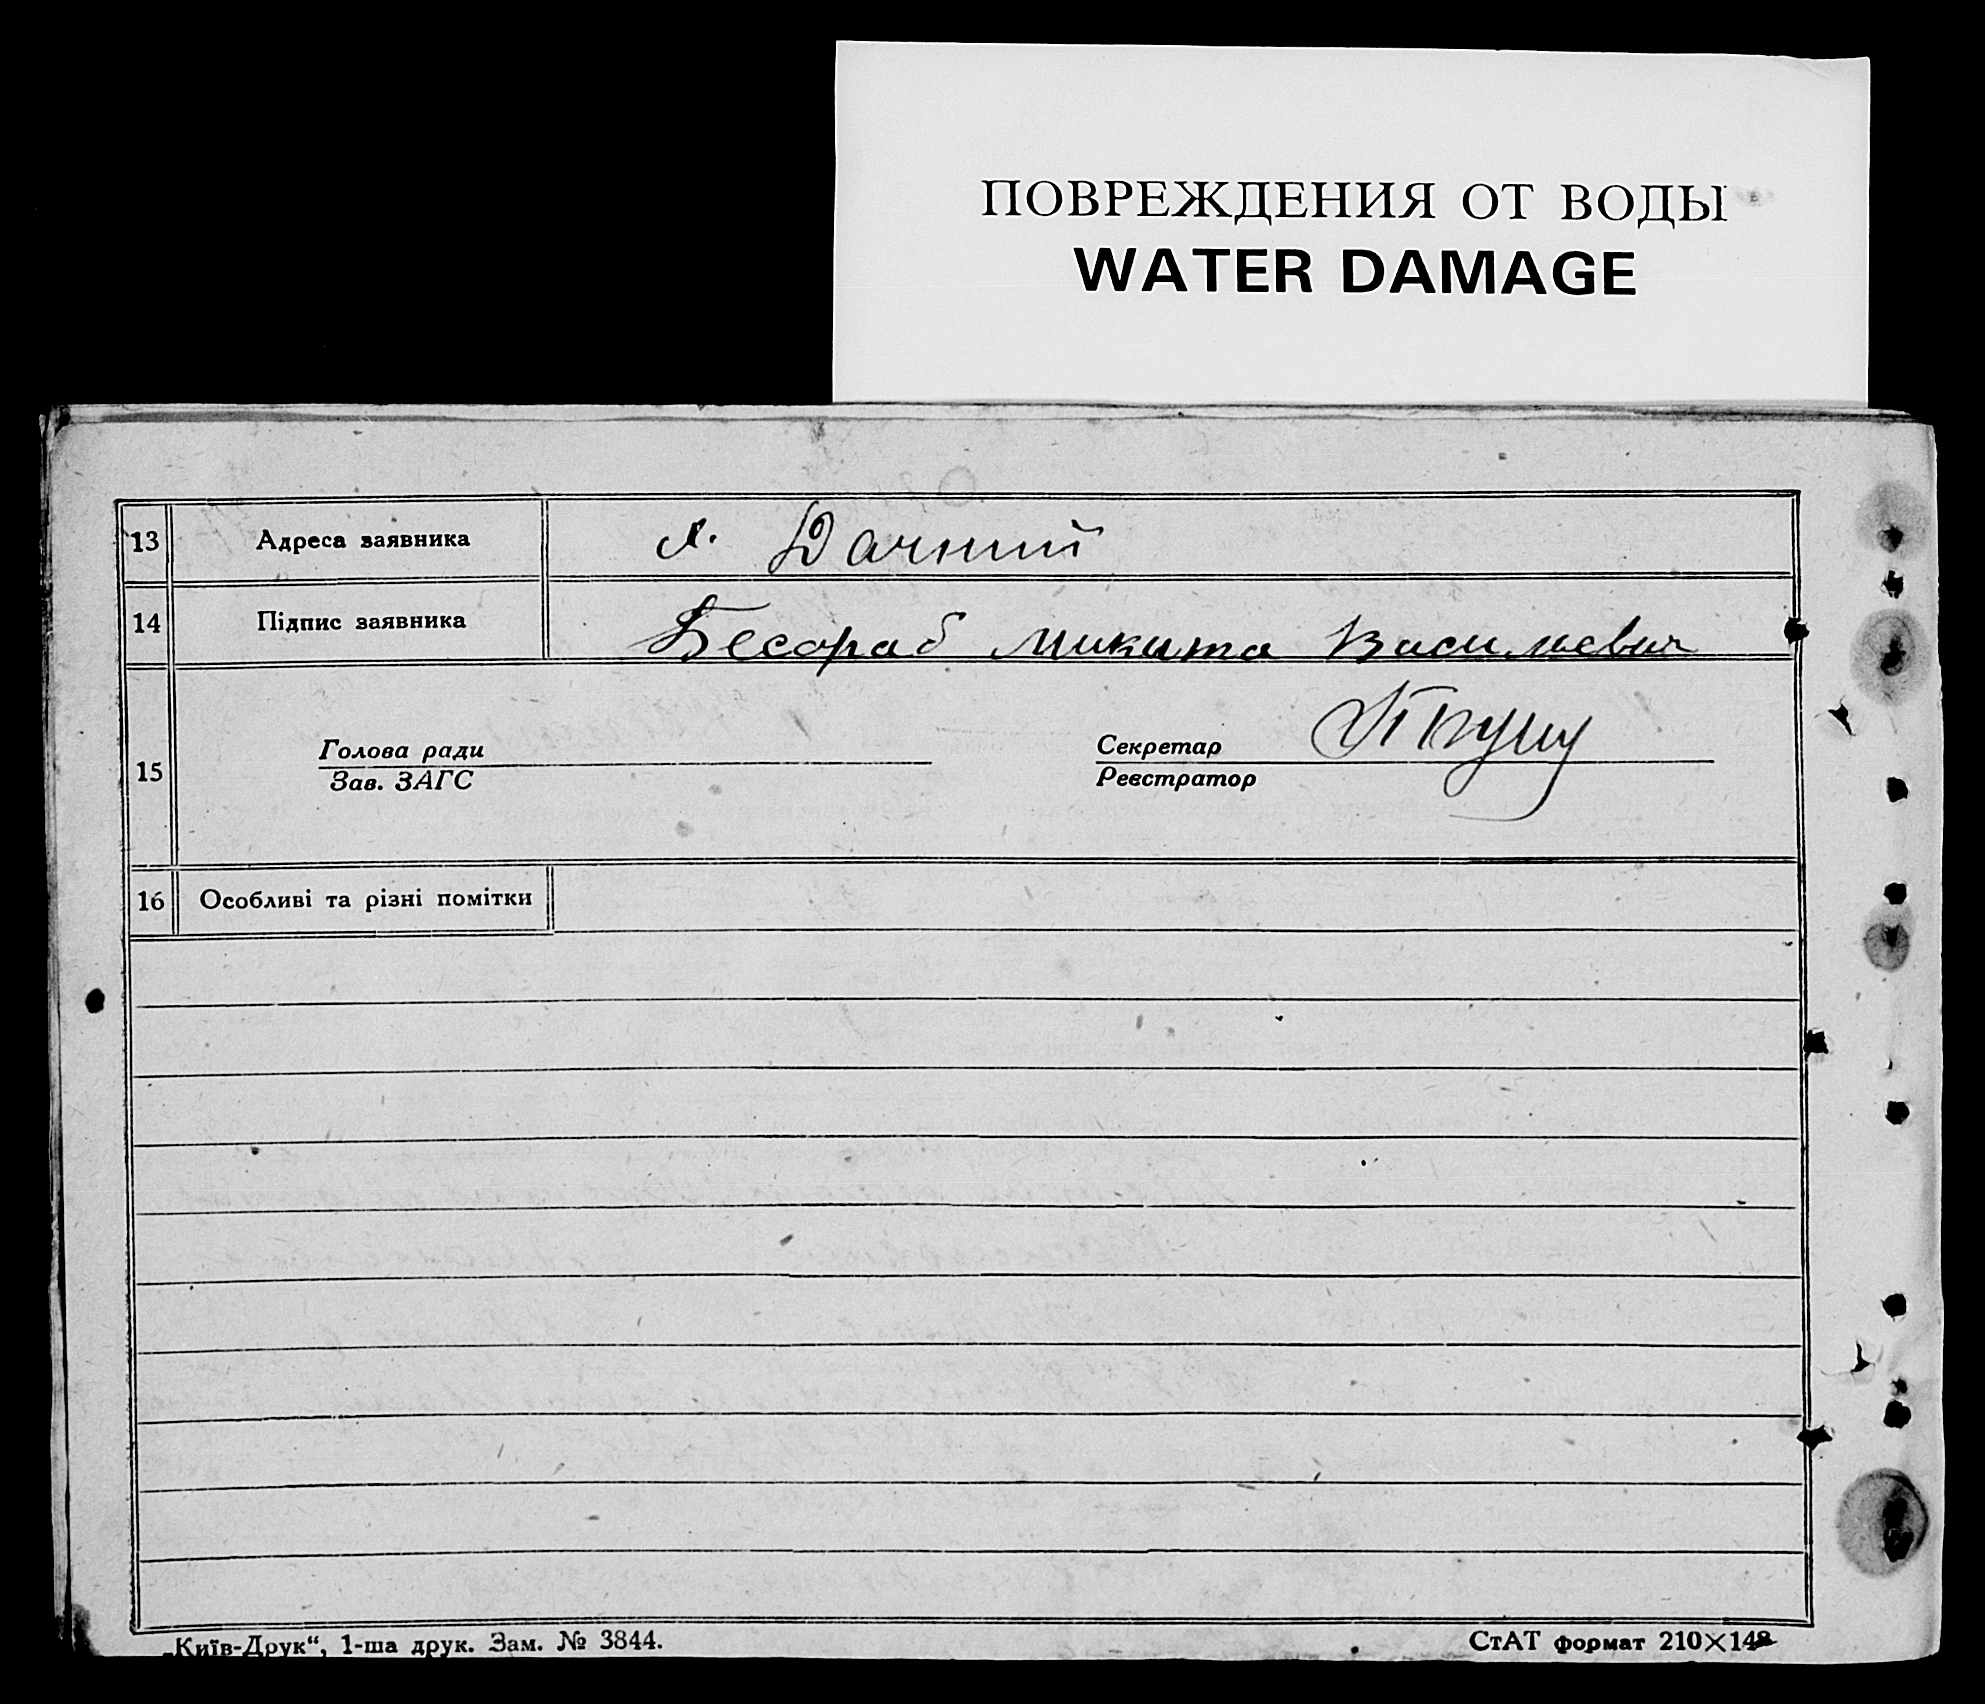 ПОВРЕЖДЕНИЯ ОТ ВОДЫ
WATER DAMAGE
13 Адреса заявника х. Дачний
14 Підпис заявника Бесараб Микита Васильевич
15 Голова ради Секретар
Зав. ЗАГС Реєстратор
16 Особливі та різні помітки
„Київ-Друк“, 1-ша друк. Зам. № 3844. СтАТ формат 210×148